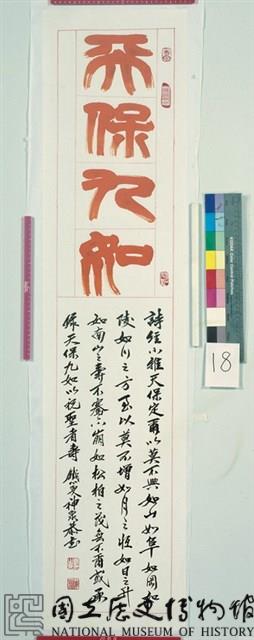 天保九如
詩經小雅天保定爾以莫不興如山如阜如岡如
陵如川之方至以莫不增如月之恒如日之升
如南山之壽不騫不崩如松柏之茂無不爾或承
錄天保九如以祝聖者壽
18
國立歷史博物館
NATIONAL MUSEUM OF HISTORY